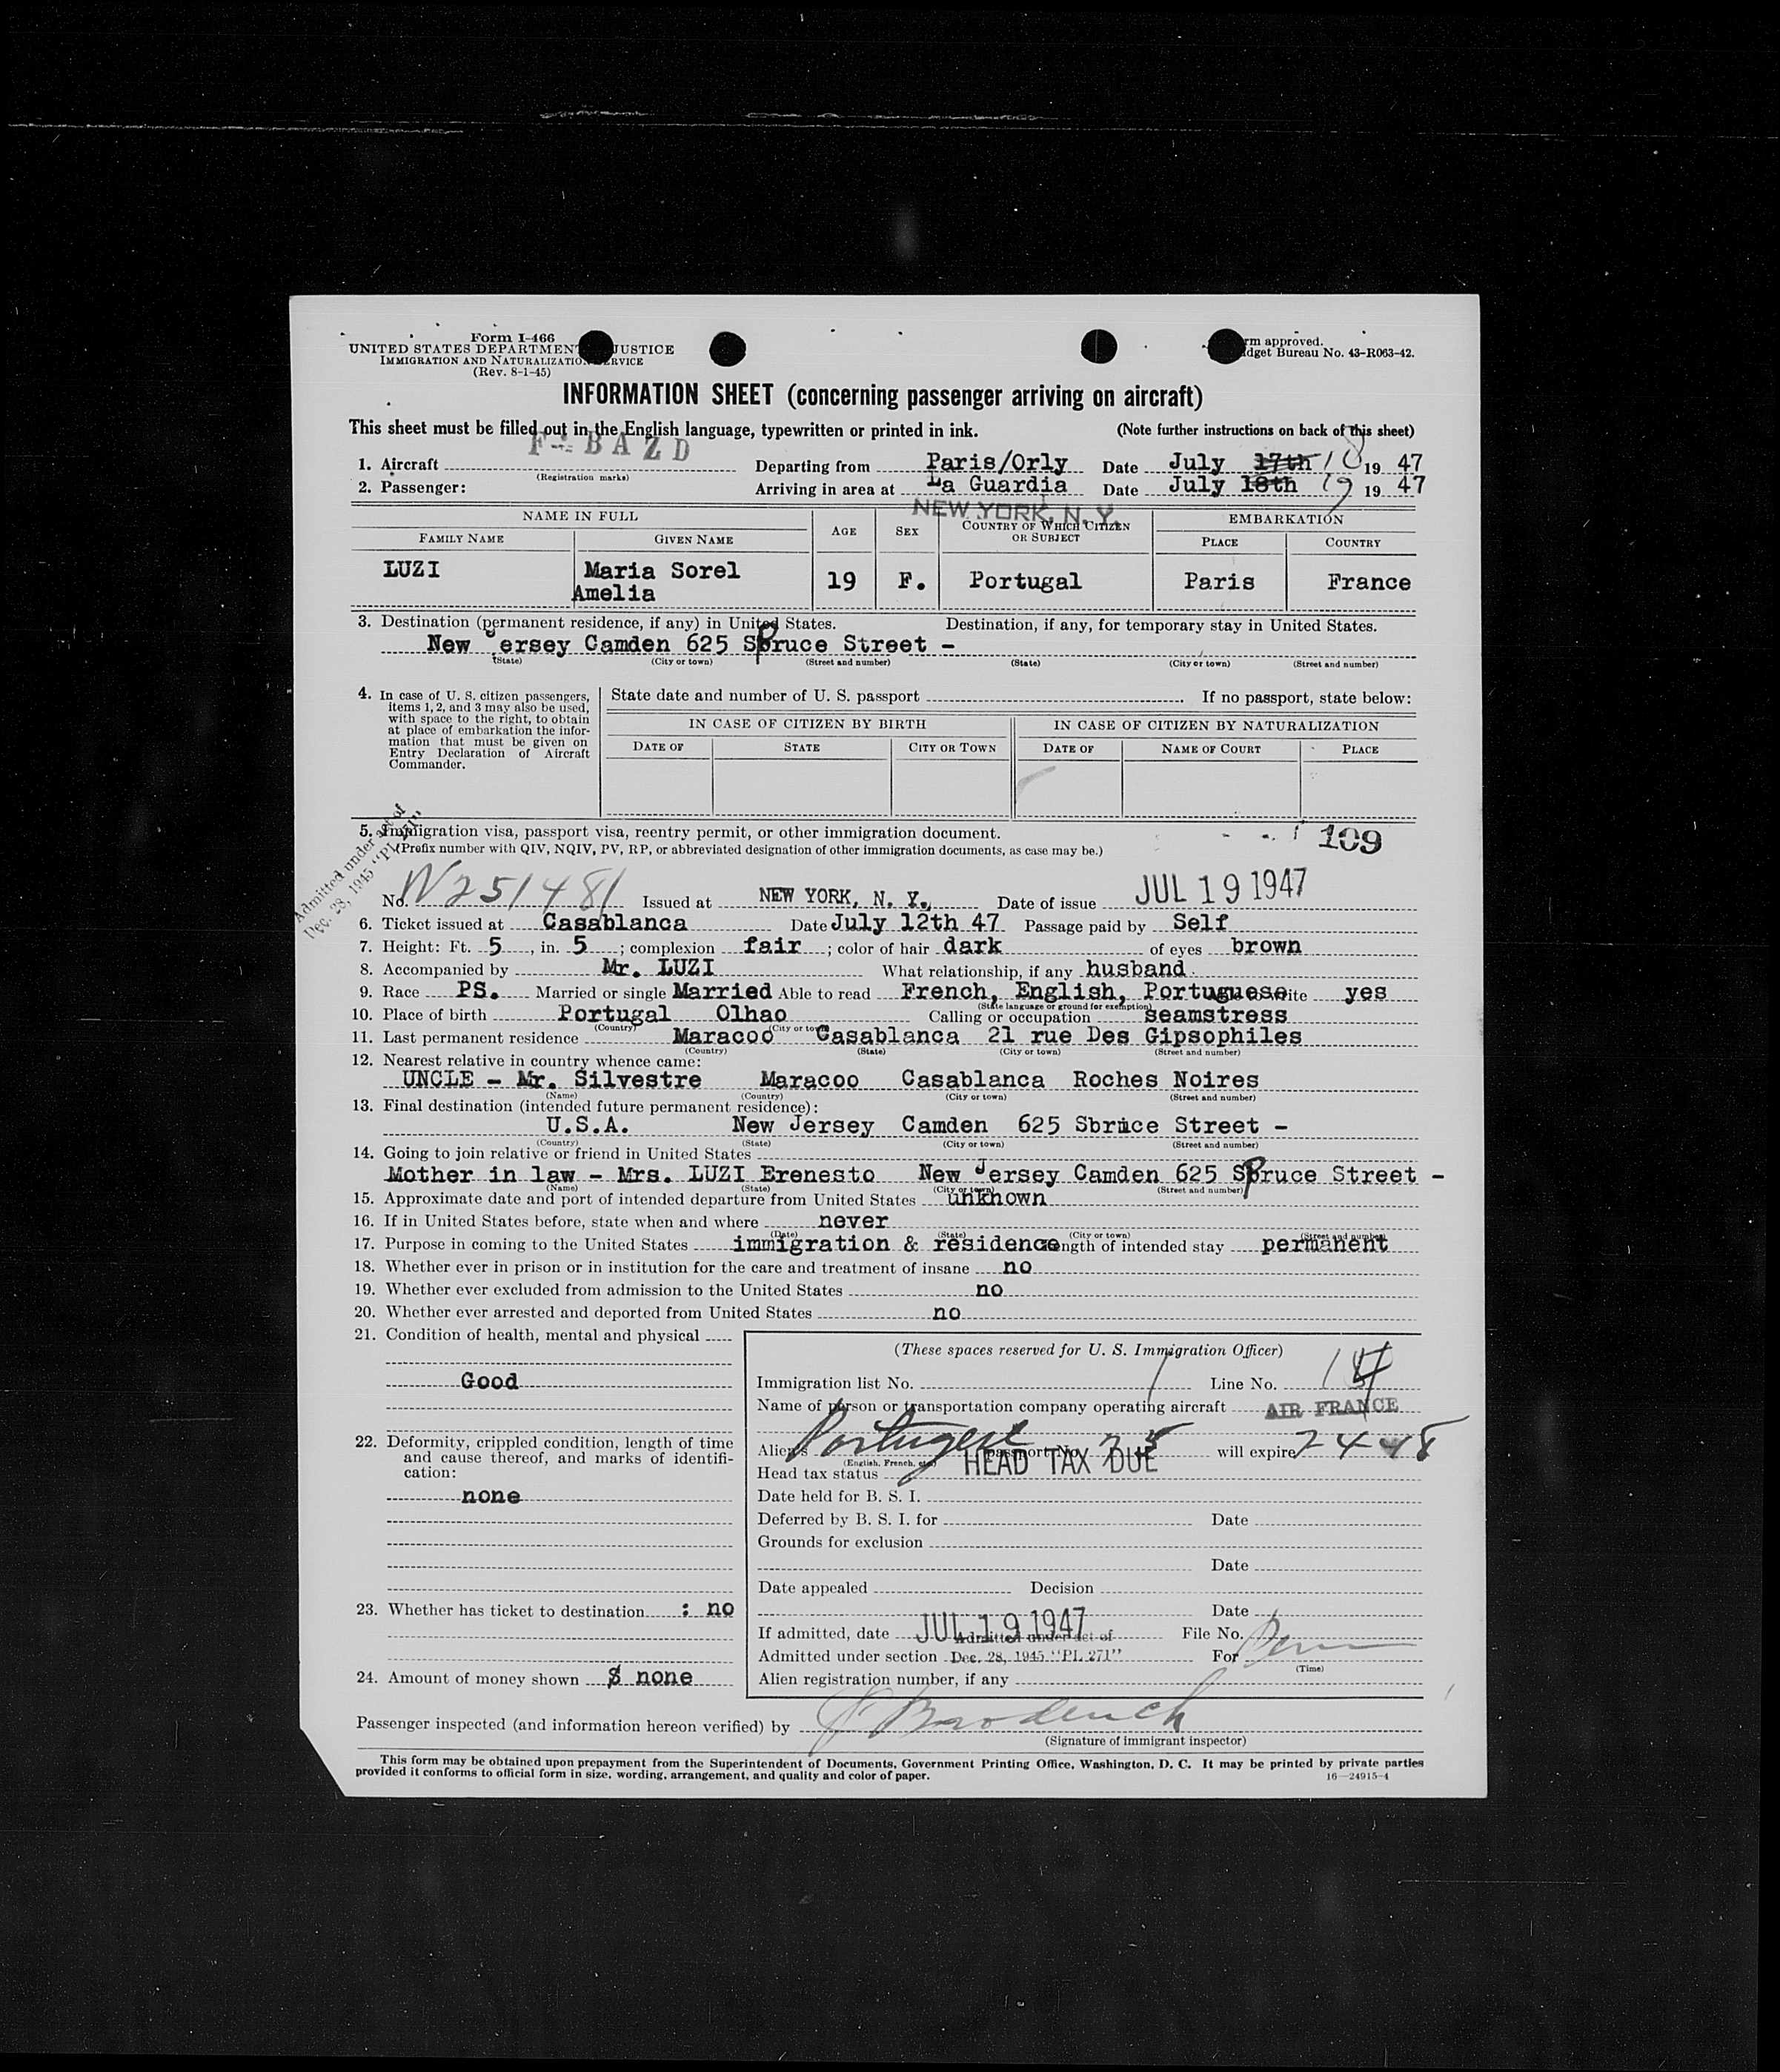 Form I-466
UNITED STATES DEPARTMENT JUSTICE
IMMIGRATION AND NATURALIZATION SERVICE
(Rev. 8-1-45)
rm approved.
dget Bureau No. 43-R063-42.
INFORMATION SHEET (concerning passenger arriving on aircraft)
This sheet must be filled out in the English language, typewritten or printed in ink. (Note further instructions on back of this sheet)
F-BAZD
1. Aircraft Departing from Paris/Orly Date July 17th 18 19 47
(Registration marks)
2. Passenger: Arriving in area at La Guardia Date July 18th 19 19 47
NEW YORK, N. Y.
NAME IN FULL AGE SEX COUNTRY OF WHICH CITIZEN OR SUBJECT EMBARKATION
FAMILY NAME GIVEN NAME PLACE COUNTRY
LUZI Maria Sorel Amelia 19 F. Portugal Paris France
3. Destination (permanent residence, if any) in United States. Destination, if any, for temporary stay in United States.
New Jersey Camden 625 Spruce Street -
(State) (City or town) (Street and number) (State) (City or town) (Street and number)
4. In case of U. S. citizen passengers, items 1, 2, and 3 may also be used, with space to the right, to obtain at place of embarkation the information that must be given on Entry Declaration of Aircraft Commander.
State date and number of U. S. passport If no passport, state below:
IN CASE OF CITIZEN BY BIRTH IN CASE OF CITIZEN BY NATURALIZATION
DATE OF STATE CITY OR TOWN DATE OF NAME OF COURT PLACE
Admitted under act of
Dec. 28, 1945 "PL 271"
5. Immigration visa, passport visa, reentry permit, or other immigration document.
109
(Prefix number with QIV, NQIV, PV, RP, or abbreviated designation of other immigration documents, as case may be.)
No. N251481 Issued at NEW YORK, N. Y., Date of issue JUL 19 1947
6. Ticket issued at Casablanca Date July 12th 47 Passage paid by Self
7. Height: Ft. 5, in. 5; complexion fair; color of hair dark of eyes brown
8. Accompanied by Mr. LUZI What relationship, if any husband
9. Race PS. Married or single Married Able to read French, English, Portuguese Able to write yes
(State language or ground for exemption)
10. Place of birth Portugal Olhao Calling or occupation seamstress
(Country) (City or town)
11. Last permanent residence Maracoo Casablanca 21 rue Des Gipsophiles
(Country) (State) (City or town) (Street and number)
12. Nearest relative in country whence came:
UNCLE - Mr. Silvestre Maracoo Casablanca Roches Noires
(Name) (Country) (City or town) (Street and number)
13. Final destination (intended future permanent residence):
U.S.A. New Jersey Camden 625 Sbruce Street -
(Country) (State) (City or town) (Street and number)
14. Going to join relative or friend in United States
Mother in law - Mrs. LUZI Erenesto New Jersey Camden 625 Spruce Street -
(Name) (State) (City or town) (Street and number)
15. Approximate date and port of intended departure from United States unkhown
16. If in United States before, state when and where never
(Date) (State) (City or town) (Street and number)
17. Purpose in coming to the United States immigration & residence Length of intended stay permanent
18. Whether ever in prison or in institution for the care and treatment of insane no
19. Whether ever excluded from admission to the United States no
20. Whether ever arrested and deported from United States no
21. Condition of health, mental and physical
Good
22. Deformity, crippled condition, length of time and cause thereof, and marks of identification:
none
23. Whether has ticket to destination : no
24. Amount of money shown $ none
(These spaces reserved for U. S. Immigration Officer)
Immigration list No. 1 Line No.
Name of person or transportation company operating aircraft AIR FRANCE
Alien's Portugese passport No. 75 will expire
(English, French, etc.)
Head tax status HEAD TAX DUE
Date held for B. S. I.
Deferred by B. S. I. for Date
Grounds for exclusion
Date
Date appealed Decision
Date
If admitted, date JUL 19 1947 File No.
Admitted under act of
Admitted under section Dec. 28, 1945 "PL 271" For Perm
(Time)
Alien registration number, if any
Passenger inspected (and information hereon verified) by
(Signature of immigrant inspector)
This form may be obtained upon prepayment from the Superintendent of Documents, Government Printing Office, Washington, D. C. It may be printed by private parties
provided it conforms to official form in size, wording, arrangement, and quality and color of paper.
16—24915-4